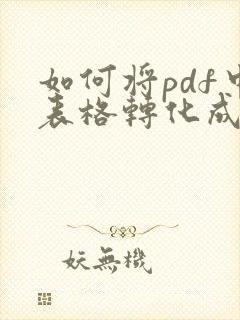 如何将pdf中
表格轉化成
妖無機